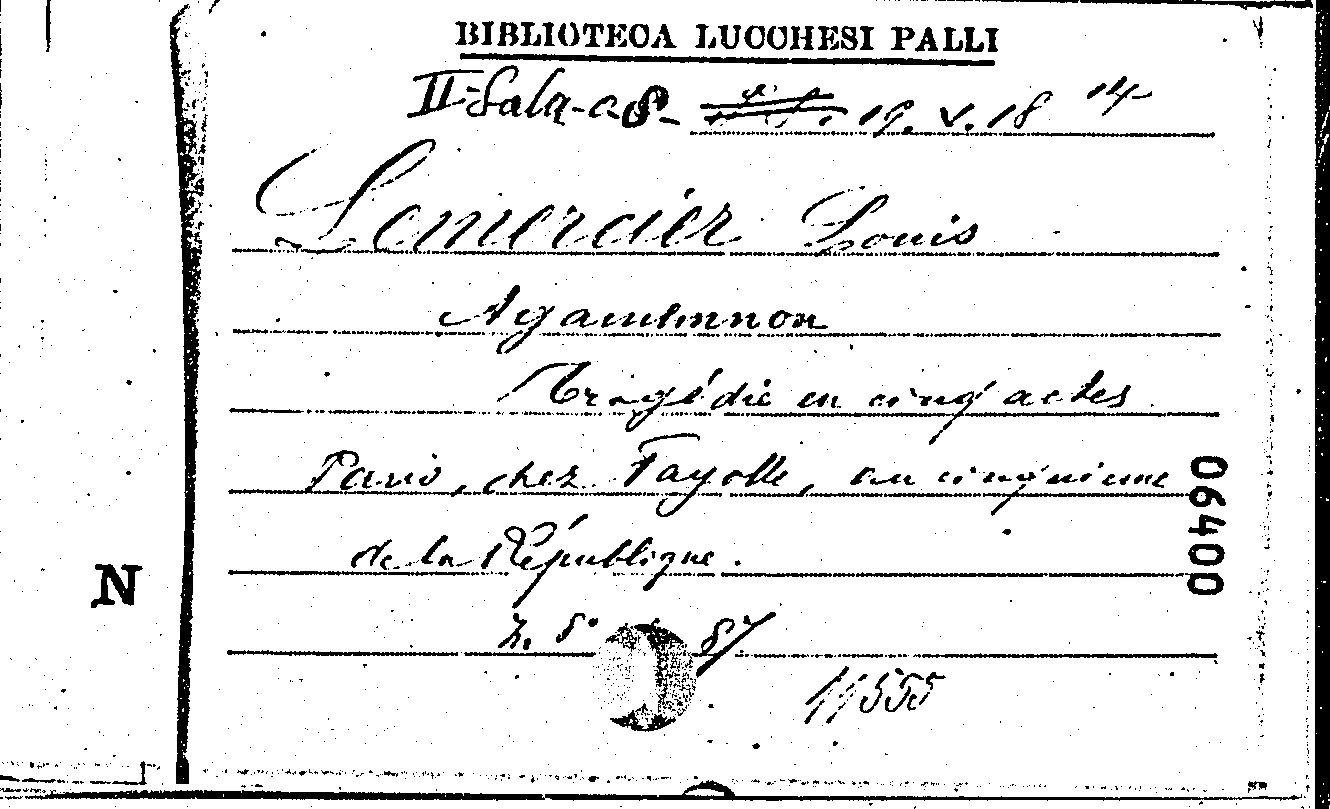 BIBLIOTECA LUCCHESI PALLI
II-Sala-a8- 19. V. 18 14
Lemercier Louis
Agamemnon
Tragédie en cinq actes
Paris, chez Fayolle, an cinquieme
de la République.
Z. 8° 87
11555
06400
N